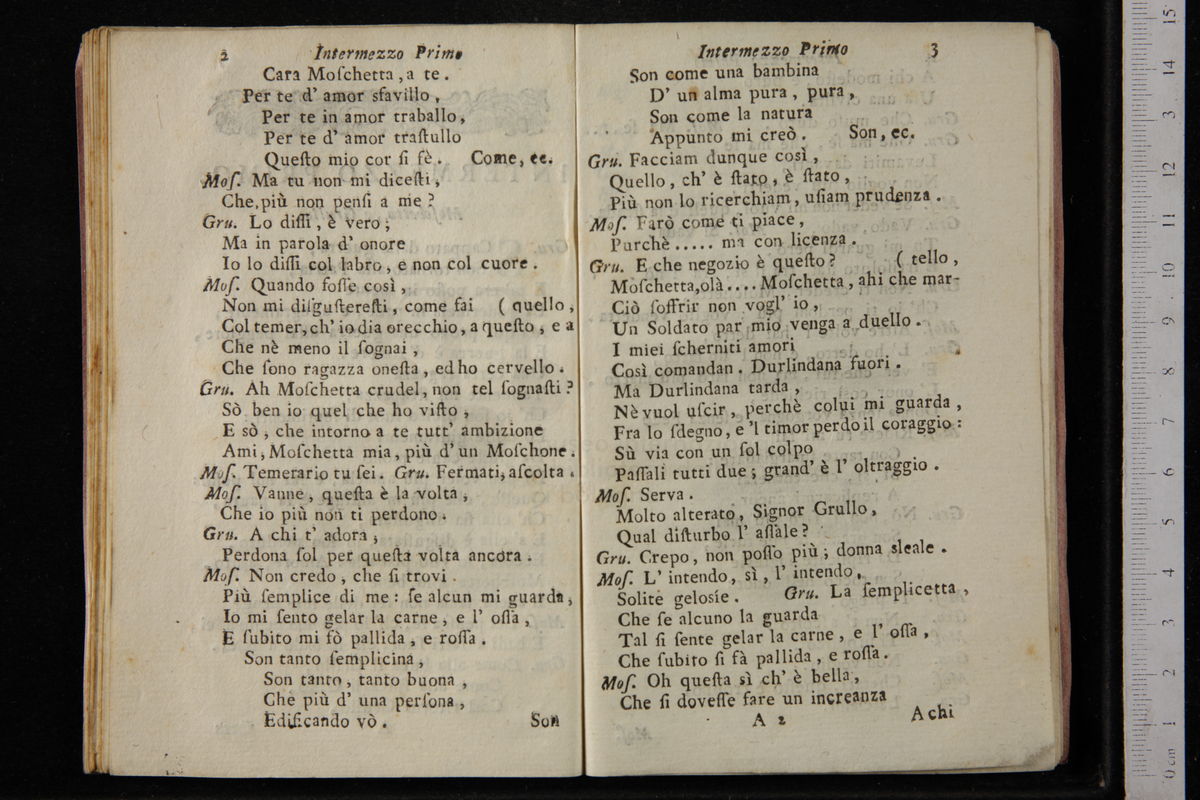 2 Intermezzo Primo
Cara Moſchetta, a te.
Per te d' amor sfavillo,
Per te in amor traballo,
Per te d' amor traſtullo
Queſto mio cor ſi fè. Come, ec.
Moſ. Ma tu non mi diceſti,
Che, più non penſi a me?
Gru. Lo diſſi, è vero;
Ma in parola d' onore
Io lo diſſi col labro, e non col cuore.
Moſ. Quando foſſe così,
Non mi diſguſtereſti, come fai (quello,
Col temer, ch' io dia orecchio, a queſto, e a
Che nè meno il ſognai,
Che ſono ragazza oneſta, ed ho cervello.
Gru. Ah Moſchetta crudel, non tel ſognaſti?
Sò ben io quel che ho viſto,
E sò, che intorno a te tutt' ambizione
Ami, Moſchetta mia, più d' un Moſchone.
Moſ. Temerario tu ſei. Gru. Fermati, aſcolta.
Moſ. Vanne, queſta è la volta,
Che io più non ti perdono.
Gru. A chi t' adora,
Perdona ſol per queſta volta ancora.
Moſ. Non credo, che ſi trovi
Più ſemplice di me: ſe alcun mi guarda,
Io mi ſento gelar la carne, e l' oſſa,
E ſubito mi fò pallida, e roſſa.
Son tanto ſemplicina,
Son tanto, tanto buona,
Che più d' una perſona,
Edificando vò. Son
Intermezzo Primo 3
Son come una bambina
D' un alma pura, pura,
Son come la natura
Appunto mi creò. Son, ec.
Gru. Facciam dunque così,
Quello, ch' è ſtato, è ſtato,
Più non lo ricerchiam, uſiam prudenza.
Moſ. Farò come ti piace,
Purchè ..... ma con licenza.
Gru. E che negozio è queſto? (tello,
Moſchetta, olà.... Moſchetta, ahi che mar-
Ciò ſoffrir non vogl' io,
Un Soldato par mio venga a duello.
I miei ſcherniti amori
Così comandan. Durlindana fuori.
Ma Durlindana tarda,
Nè vuol uſcir, perchè colui mi guarda,
Fra lo ſdegno, e 'l timor perdo il coraggio:
Sù via con un ſol colpo
Paſſali tutti due; grand' è l' oltraggio.
Moſ. Serva.
Molto alterato, Signor Grullo,
Qual diſturbo l' aſſale?
Gru. Crepo, non poſſo più; donna sleale.
Moſ. L' intendo, sì, l' intendo,
Solite geloſie. Gru. La ſemplicetta,
Che ſe alcuno la guarda
Tal ſi ſente gelar la carne, e l' oſſa,
Che ſubito ſi fà pallida, e roſſa.
Moſ. Oh queſta sì ch' è bella,
Che ſi doveſſe fare un increanza
A 2 A chi